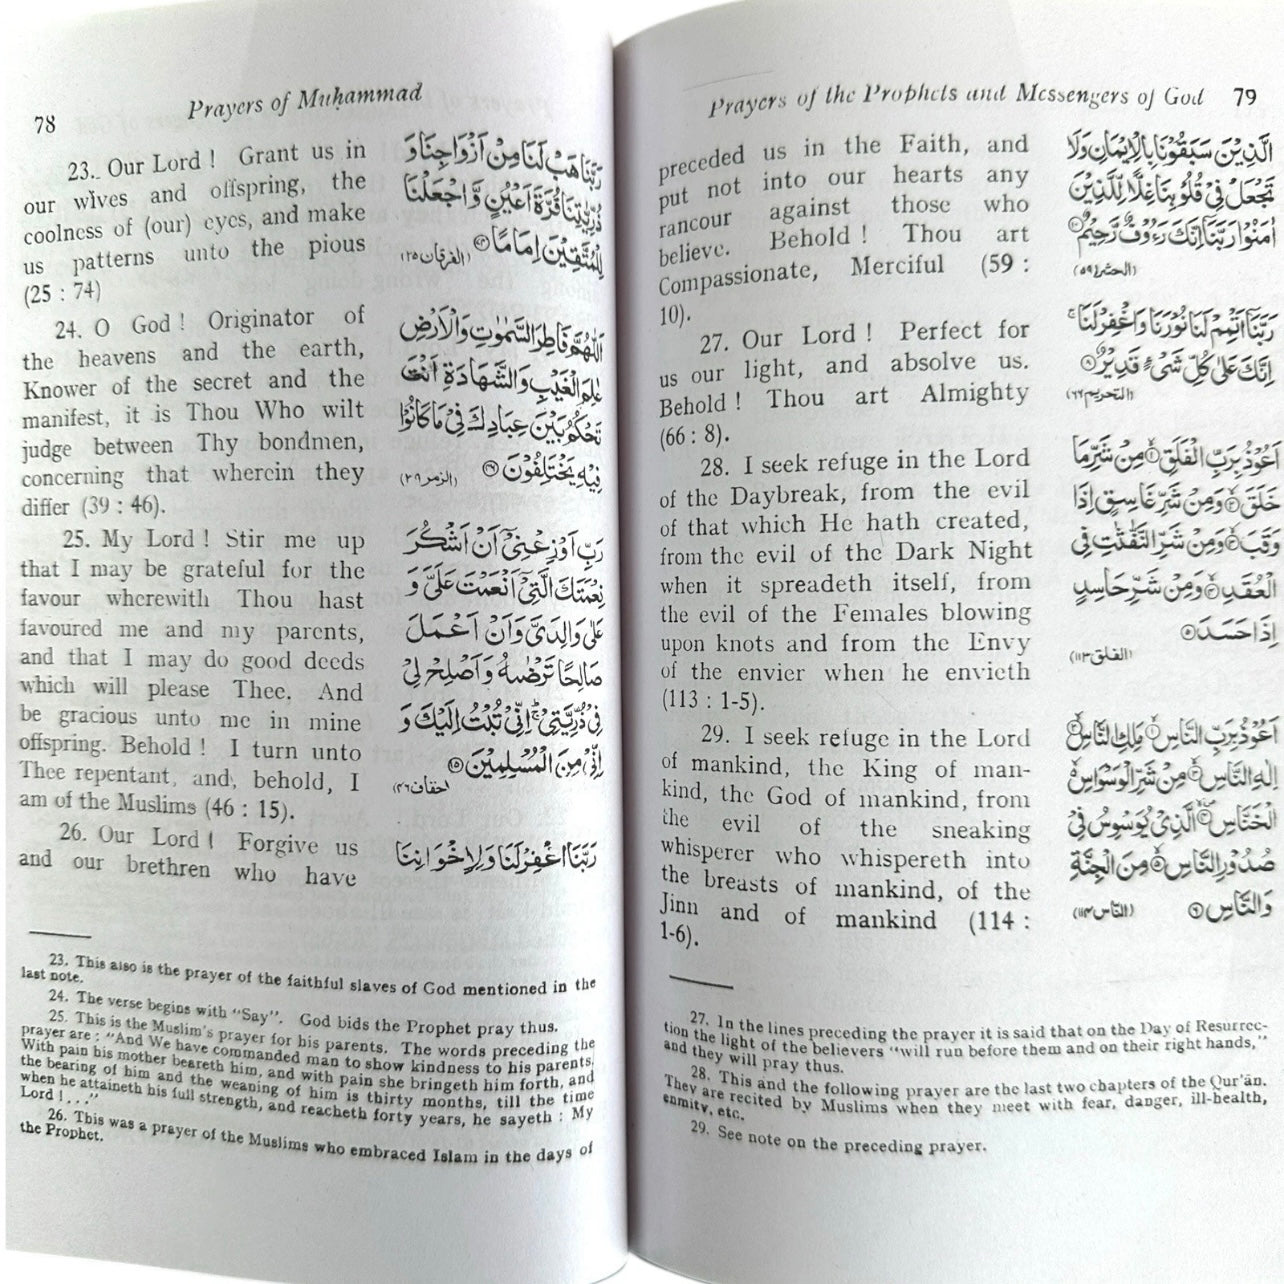 78
Prayers of Muḥammad
23. Our Lord ! Grant us in
our wives and offspring, the
coolness of (our) eyes, and make
us patterns unto the pious
(25 : 74)
رَبَّنَا هَبْ لَنَا مِنْ اَزْوَاجِنَا وَ
ذُرِّيّٰتِنَا قُرَّةَ اَعْيُنٍ وَّاجْعَلْنَا
لِلْمُتَّقِيْنَ اِمَامًا
(الفرقان ۲۵)
24. O God ! Originator of
the heavens and the earth,
Knower of the secret and the
manifest, it is Thou Who wilt
judge between Thy bondmen,
concerning that wherein they
differ (39 : 46).
اَللّٰهُمَّ فَاطِرَ السَّمٰوٰتِ وَالْاَرْضِ
عٰلِمَ الْغَيْبِ وَالشَّهَادَةِ اَنْتَ
تَحْكُمُ بَيْنَ عِبَادِكَ فِيْ مَا كَانُوْا
فِيْهِ يَخْتَلِفُوْنَ
(الزمر ۳۹)
25. My Lord ! Stir me up
that I may be grateful for the
favour wherewith Thou hast
favoured me and my parents,
and that I may do good deeds
which will please Thee. And
be gracious unto me in mine
offspring. Behold ! I turn unto
Thee repentant, and, behold, I
am of the Muslims (46 : 15).
رَبِّ اَوْزِعْنِيْٓ اَنْ اَشْكُرَ
نِعْمَتَكَ الَّتِيْٓ اَنْعَمْتَ عَلَيَّ وَ
عَلٰى وَالِدَيَّ وَاَنْ اَعْمَلَ
صَالِحًا تَرْضٰىهُ وَاَصْلِحْ لِيْ
فِيْ ذُرِّيَّتِيْ ۚ اِنِّيْ تُبْتُ اِلَيْكَ وَ
اِنِّيْ مِنَ الْمُسْلِمِيْنَ ۝۱۵
احقاف ۴۶)
26. Our Lord ! Forgive us
and our brethren who have
رَبَّنَا اغْفِرْ لَنَا وَلِاِخْوَانِنَا
23. This also is the prayer of the faithful slaves of God mentioned in the
last note.
24. The verse begins with "Say". God bids the Prophet pray thus.
25. This is the Muslim's prayer for his parents. The words preceding the
prayer are : "And We have commanded man to show kindness to his parents.
With pain his mother beareth him, and with pain she bringeth him forth, and
the bearing of him and the weaning of him is thirty months, till the time
when he attaineth his full strength, and reacheth forty years, he sayeth : My
Lord ! . . ."
26. This was a prayer of the Muslims who embraced Islam in the days of
the Prophet.
Prayers of the Prophets and Messengers of God 79
preceded us in the Faith, and
put not into our hearts any
rancour against those who
believe. Behold ! Thou art
Compassionate, Merciful (59 :
10).
الَّذِيْنَ سَبَقُوْنَا بِالْاِيْمَانِ وَلَا
تَجْعَلْ فِيْ قُلُوْبِنَا غِلًّا لِّلَّذِيْنَ
اٰمَنُوْا رَبَّنَآ اِنَّكَ رَءُوْفٌ رَّحِيْمٌ
(الحشر ۵۹)
27. Our Lord ! Perfect for
us our light, and absolve us.
Behold ! Thou art Almighty
(66 : 8).
رَبَّنَآ اَتْمِمْ لَنَا نُوْرَنَا وَاغْفِرْ لَنَا ۚ
اِنَّكَ عَلٰى كُلِّ شَيْءٍ قَدِيْرٌ
(التحريم ۶۶)
28. I seek refuge in the Lord
of the Daybreak, from the evil
of that which He hath created,
from the evil of the Dark Night
when it spreadeth itself, from
the evil of the Females blowing
upon knots and from the Envy
of the envier when he envieth
(113 : 1-5).
اَعُوْذُ بِرَبِّ الْفَلَقِ ۝۱ مِنْ شَرِّ مَا
خَلَقَ ۝۲ وَمِنْ شَرِّ غَاسِقٍ اِذَا
وَقَبَ ۝۳ وَمِنْ شَرِّ النَّفّٰثٰتِ فِي
الْعُقَدِ ۝۴ وَمِنْ شَرِّ حَاسِدٍ
اِذَا حَسَدَ ۝۵
(الفلق ۱۱۳)
29. I seek refuge in the Lord
of mankind, the King of man-
kind, the God of mankind, from
the evil of the sneaking
whisperer who whispereth into
the breasts of mankind, of the
Jinn and of mankind (114 :
1-6).
اَعُوْذُ بِرَبِّ النَّاسِ ۝۱ مَلِكِ النَّاسِ ۝۲
اِلٰهِ النَّاسِ ۝۳ مِنْ شَرِّ الْوَسْوَاسِ ۙ
الْخَنَّاسِ ۝۴ الَّذِيْ يُوَسْوِسُ فِيْ
صُدُوْرِ النَّاسِ ۝۵ مِنَ الْجِنَّةِ
وَالنَّاسِ ۝۶
(الناس ۱۱۴)
27. In the lines preceding the prayer it is said that on the Day of Resurrec-
tion the light of the believers "will run before them and on their right hands,"
and they will pray thus.
28. This and the following prayer are the last two chapters of the Qur'ān.
They are recited by Muslims when they meet with fear, danger, ill-health,
enmity, etc.
29. See note on the preceding prayer.